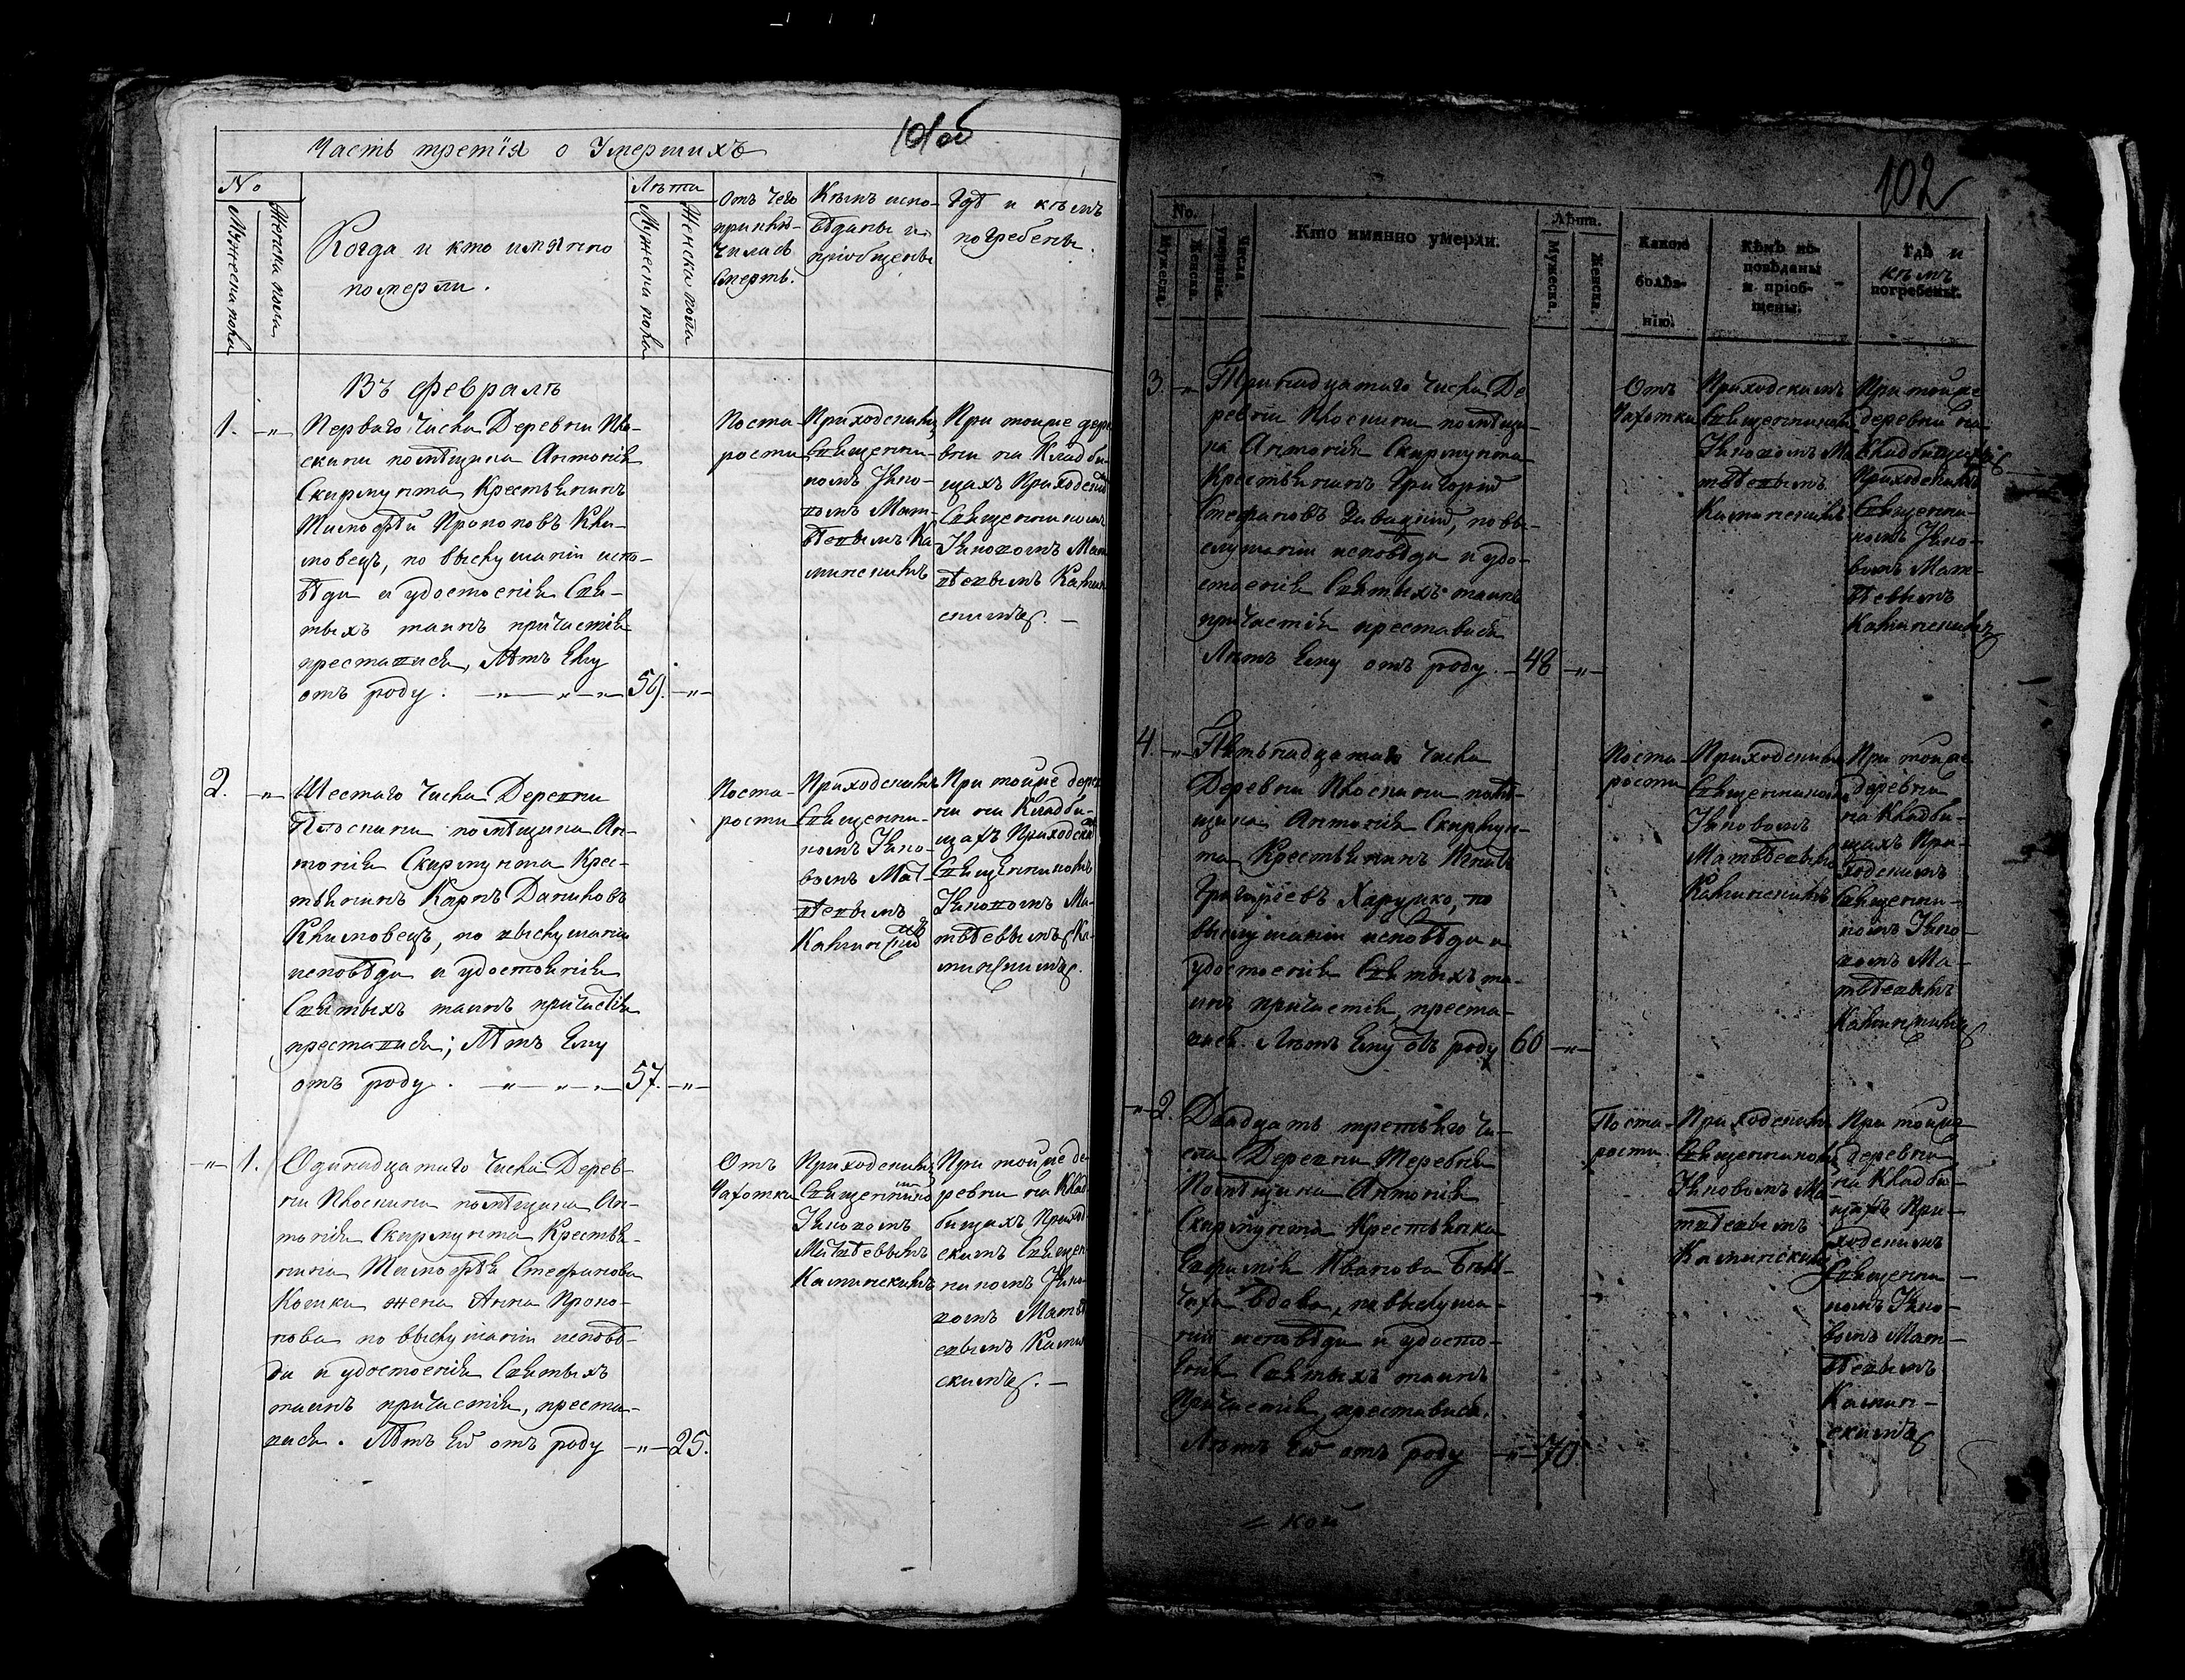 101об
Часть третія о Умершихъ
No
Мужеска пола
Женска пола
Когда и кто имянно
померли.
Лѣта
Мужеска пола
Женска пола
Отъ чего
приклю-
чилась
Смерть.
Кѣмъ испо-
вѣданы и
пріобщены
Гдѣ и кѣмъ
погребены
Въ Февралѣ
1. -„-
Перваго Числа Деревни Пло-
скини помѣщика Антонія
Скирмунта Крестьянинъ
Тимофѣй Проколовъ Кли-
мовецъ, по выслушаніи испо-
вѣди и удостоенія Свя-
тыхъ таинъ причастія
преставися, Лѣтъ Ему
отъ роду. -„- „-„- 59. -„-
Поста
рости
Приходскимъ
Священни-
комъ Яко-
вомъ Мат-
вѣевымъ Ка-
минскимъ
При тойже дере
вни на Кладби-
щахъ Приходски
Священникомъ
Яковомъ Мат
вѣевымъ Камин
скимъ. –
2. -„-
Шестаго Числа Деревни
Плоскини помѣщика Ан-
тонія Скирмунта Крес-
тьянинъ Карпъ Даниловъ
Климовецъ, по выслушаніи
исповѣди и удостоянія
Святыхъ таинъ причастія
преставися; Лѣтъ Ему
отъ роду. -„-„-„- 57. -„-
Поста-
рости
Приходскимъ
Священни-
комъ Яко-
вомъ Мат-
вѣевымъ
Каминскимъ
При тойже дерев
ни на Кладби-
щахъ Приходски
Священникомъ
Яковомъ Ма-
твѣевымъ Ка-
минскимъ.
-„- 1.
Одинадцатаго Числа Дерев-
ни Плоскини помѣщика Ан-
тонія Скирмунта Крестья-
нина Тимофѣя Стефанова
Кошки жена Анна Проко-
пова по выслушаніи исповѣ-
ди и удостоенія Святыхъ
таинъ причастія, преста-
вися. Лѣтъ Ей отъ роду -„- 25.
Отъ
Чахотки
Приходскимъ
Священнико
Яковомъ
Матвѣевымъ
Каминскимъ
При тойже де
ревни на Клад
бищахъ Приход
скимъ Священ
никомъ Яко-
вомъ Матвѣ
евымъ Камин
скимъ. –
102
No.
Мужеска.
Женска.
Числа
умершиха.
Кто имянно умерли.
Лѣта.
Мужеска.
Женска.
Какою
болѣз-
нію.
Кѣмъ ис-
повѣданы
и пріоб-
щены.
Гдѣ и
кѣмъ
погребены.
3 -„-
Тринадцатаго Числа Де
ревни Плоскини помѣщи-
ка Антонія Скирмунта
Крестьянинъ Григорій
Стефановъ Завацкій, по вы-
слушаніи исповѣди и удо-
стоенія Святыхъ таинъ
причастія преставися
Лѣтъ Ему отъ роду. - 48 -„-
Отъ
Чахотки
Приходскимъ
Священникомъ
Яковомъ Ма
твѣевымъ
Каминскимъ
При тойже
деревни на
Кладбищахъ
Приходскимъ
Священни-
комъ Яко-
вомъ Мат-
вѣевымъ
Каминскимъ
4. -„-
Пятьнадцатаго Числа
Деревни Плоскини помѣ-
щика Антонія Скирмун-
та Крестьянинъ
Григоріевъ Харушко, по
выслушаніи исповѣди и
удостоенія Святыхъ та-
инъ причастія, преста-
вися. Лѣтъ Ему отъ роду 60 -„-
Поста
рости
Приходскимъ
Священникомъ
Яковомъ
Матвѣевымъ
Каминскимъ
При тойже
деревни
на Кладби-
щахъ При-
ходскимъ
Священни-
комъ Яко-
вомъ Ма-
твѣевымъ
Каминскимъ
-„- 2.
Двадцать третьяго Чи-
сла Деревни Теребня
Помѣщика Антонія
Скирмунта Крестьянка
Евфимія Иванова
вдова, по выслуша-
ніи исповѣди и удосто-
енія Святыхъ таинъ
Причастія, преставися.
Лѣтъ Ей отъ роду -„- 70
Поста-
рости
Приходскимъ
Священникомъ
Яковомъ Ма-
твѣевымъ
Каминскимъ
При тойже
деревни
на Кладби-
щахъ При-
ходскимъ
Священни-
комъ Яко-
вомъ Мат-
вѣевымъ
Камин-
скимъ
= кой